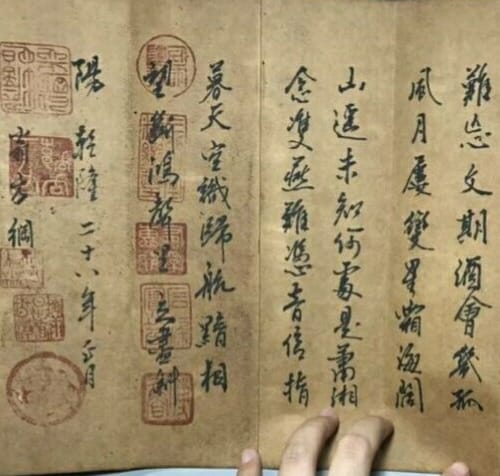 難忘文期酒會幾孤
風月屢變星霜海闊
山遥未知何處是蕭湘
念雙燕難憑音信指
暮天空識歸航黯相
望斷鴻聲里立盡斜
陽 乾隆二十八年正月
翁方綱